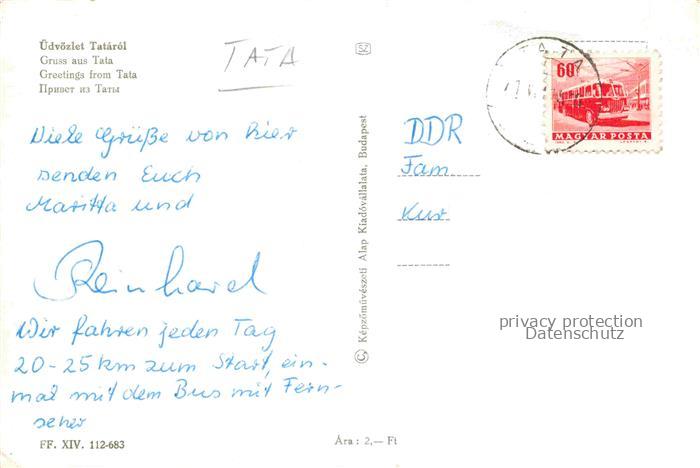 Üdvözlet Tatáról
Gruss aus Tata
Greetings from Tata
Привет из Таты
TATA
SZ
Viele Grüße von hier
senden Euch
Maritta und
Reinhard
Wir fahren jeden Tag
20-25 km zum Start, ein-
mal mit dem Bus mit Fern-
seher
FF. XIV. 112-683
Ára : 2,— Ft
© Képzőművészeti Alap Kiadóvállalata, Budapest
TATA
60f
MAGYAR POSTA
DDR
Fam
Kur
privacy protection
Datenschutz